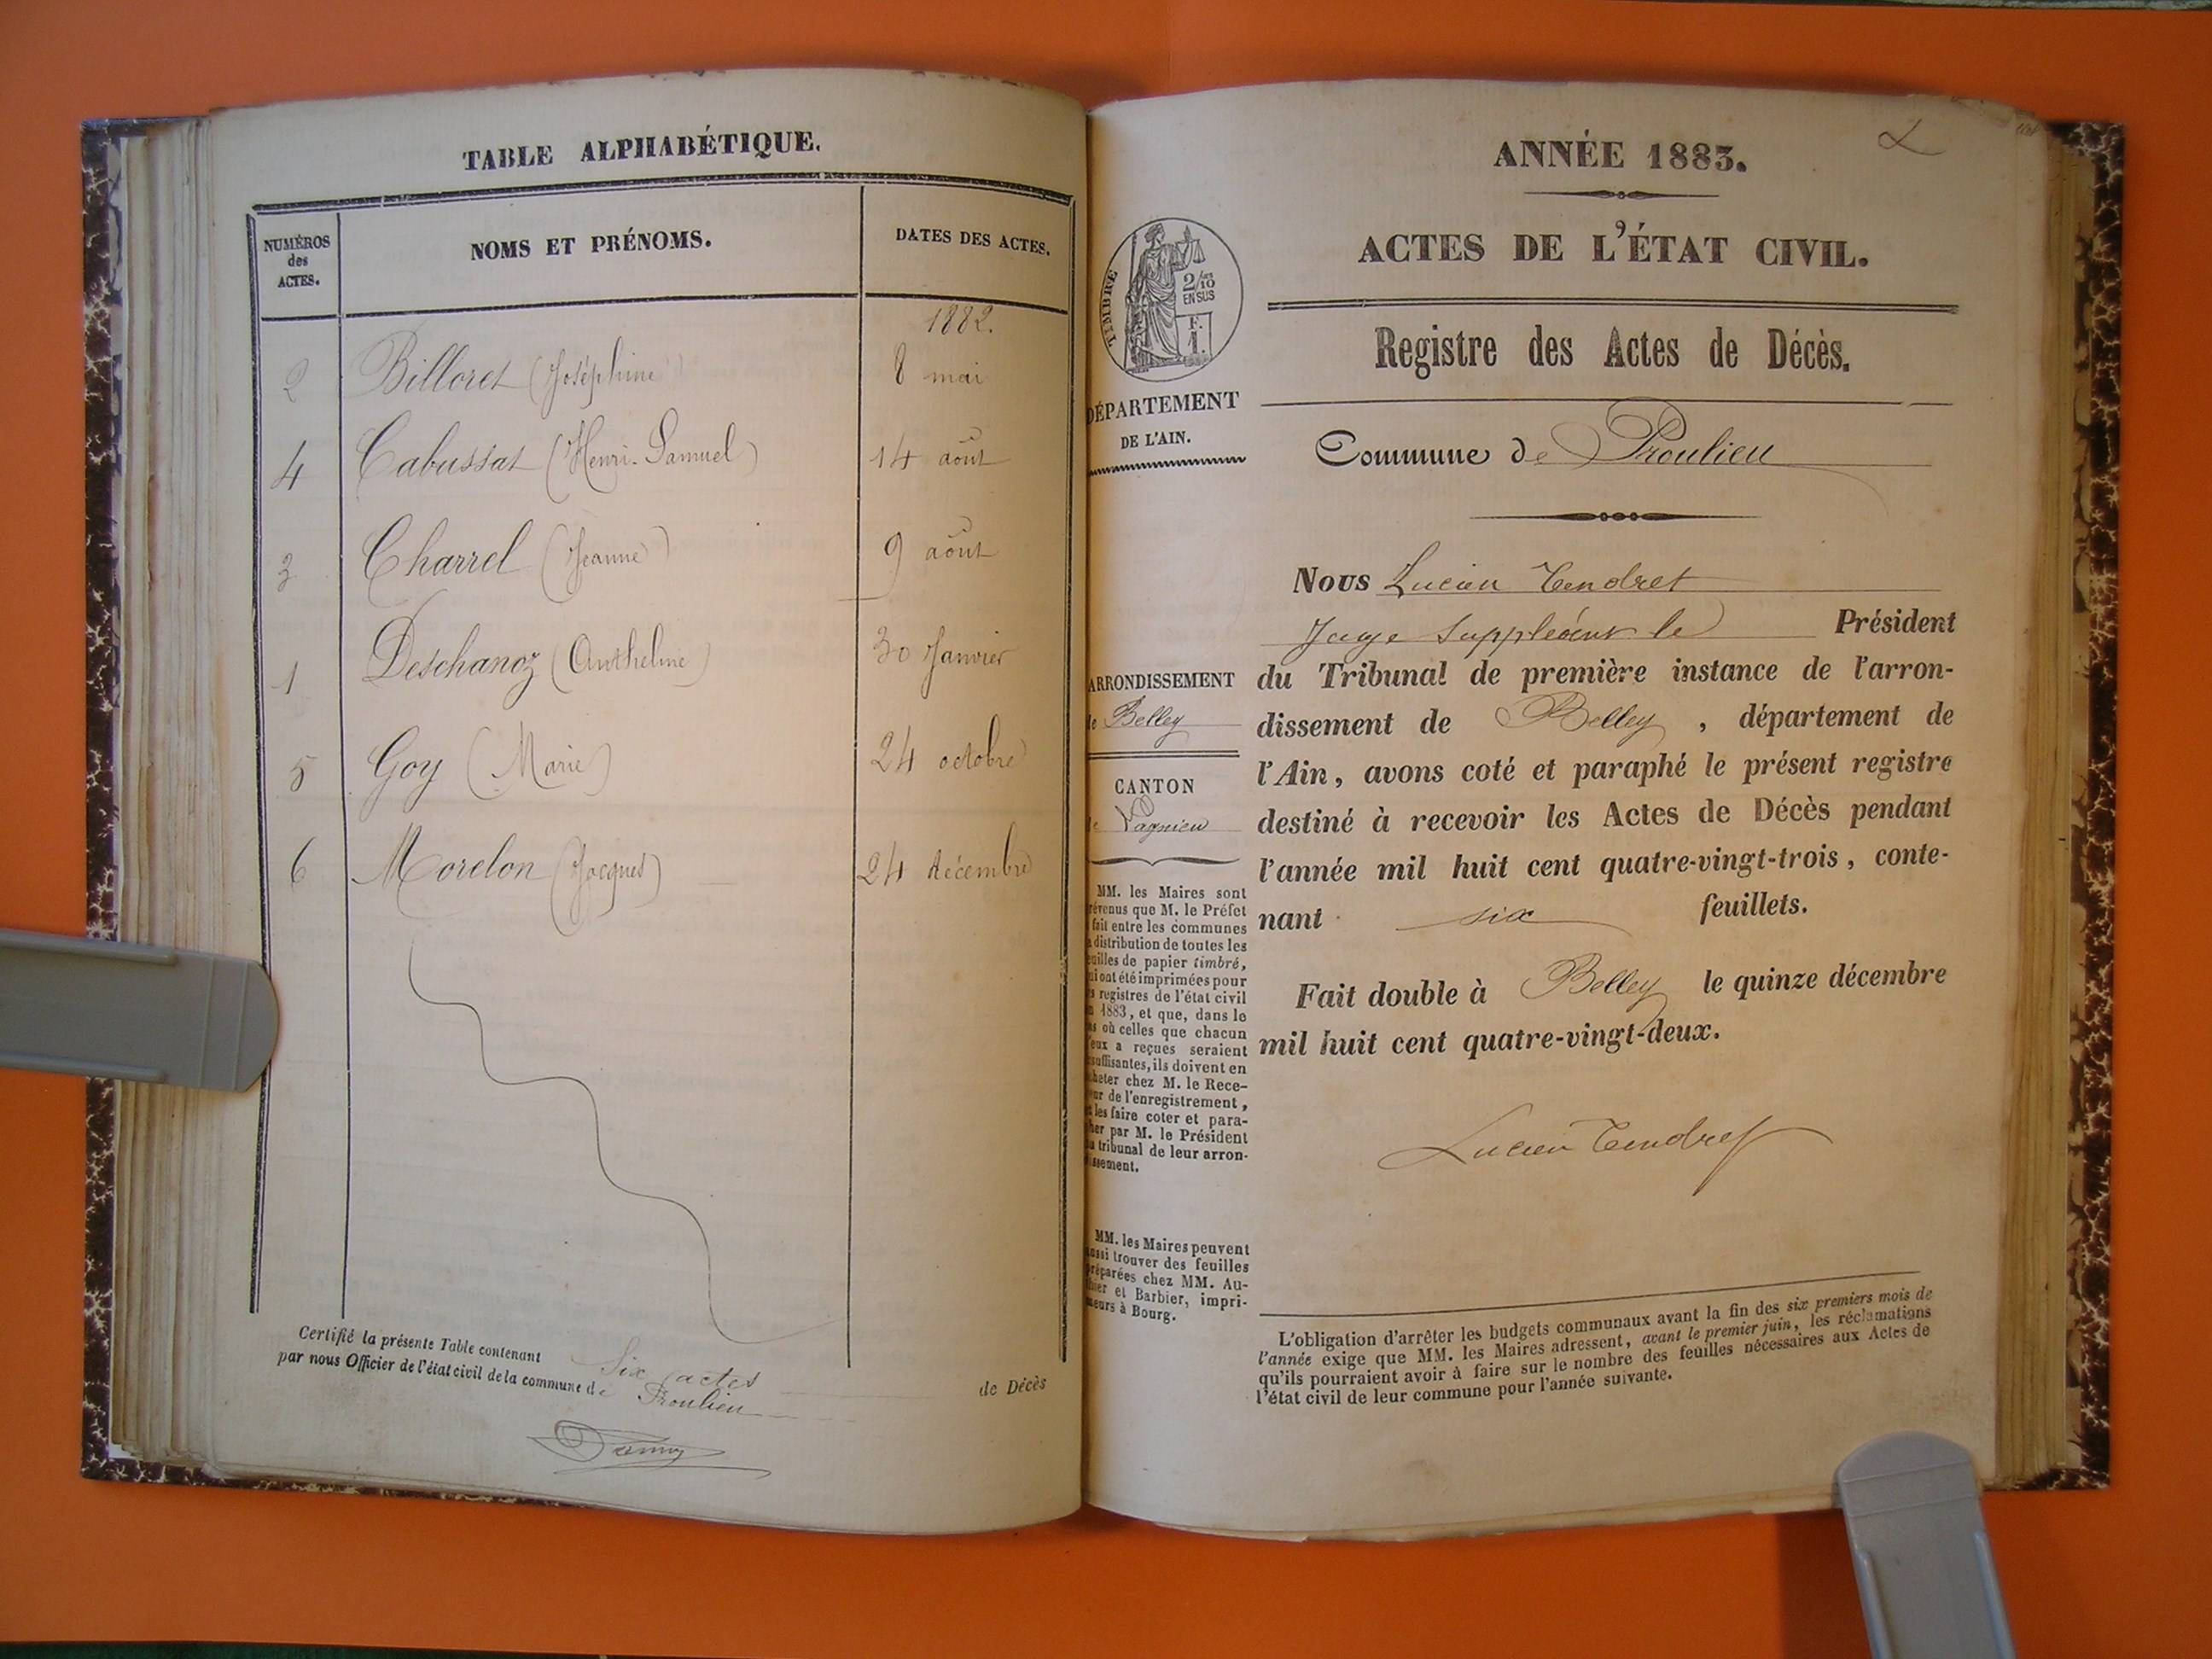 TABLE ALPHABÉTIQUE.
NUMÉROS
des
ACTES.
NOMS ET PRÉNOMS.
DATES DES ACTES.
1882.
2 Billoret (Joséphine) 8 mai
4 Cabussat (Henri-Samuel) 14 août
3 Charrel (Jeanne) 9 août
1 Deschanoz (Anthelme) 30 Janvier
5 Goy (Marie) 24 octobre
6 Morelon (Jacques) 24 décembre
Certifié la présente Table contenant Six actes de Décès
par nous Officier de l'état civil de la commune de Proulieu
ANNÉE 1883.
ACTES DE L'ÉTAT CIVIL.
Registre des Actes de Décès.
Commune de Proulieu
TIMBRE
2/10
EN SUS
F.
1.
DÉPARTEMENT
DE L'AIN.
ARRONDISSEMENT
de Belley
CANTON
de Lagnieu
MM. les Maires sont
prévenus que M. le Préfet
fait entre les communes
la distribution de toutes les
feuilles de papier timbré,
qui ont été imprimées pour
les registres de l'état civil
en 1883, et que, dans le
cas où celles que chacun
d'eux a reçues seraient
insuffisantes, ils doivent en
acheter chez M. le Rece-
veur de l'enregistrement,
et les faire coter et para-
pher par M. le Président
du tribunal de leur arron-
dissement.
MM. les Maires peuvent
aussi trouver des feuilles
préparées chez MM. Au-
thier et Barbier, impri-
meurs à Bourg.
Nous Lucien Tendret
Juge Suppléant le Président
du Tribunal de première instance de l'arron-
dissement de Belley, département de
l'Ain, avons coté et paraphé le présent registre
destiné à recevoir les Actes de Décès pendant
l'année mil huit cent quatre-vingt-trois, conte-
nant six feuillets.
Fait double à Belley le quinze décembre
mil huit cent quatre-vingt-deux.
Lucien Tendret
L'obligation d'arrêter les budgets communaux avant la fin des six premiers mois de
l'année exige que MM. les Maires adressent, avant le premier juin, les réclamations
qu'ils pourraient avoir à faire sur le nombre des feuilles nécessaires aux Actes de
l'état civil de leur commune pour l'année suivante.